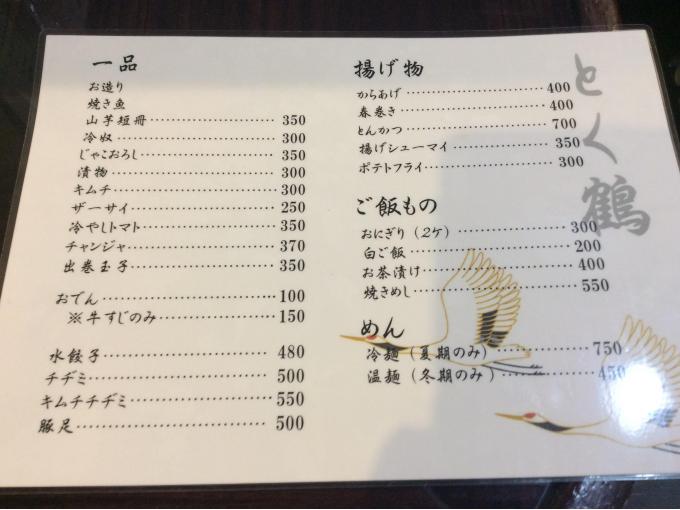 一品
お造り
焼き魚
山芋短冊 350
冷奴 300
じゃこおろし 350
漬物 300
キムチ 300
ザーサイ 250
冷やしトマト 350
チャンジャ 370
出巻玉子 350
おでん 100
※牛すじのみ 150
水餃子 480
チヂミ 500
キムチチヂミ 550
豚足 500
揚げ物
からあげ 400
春巻き 400
とんかつ 700
揚げシューマイ 350
ポテトフライ 300
ご飯もの
おにぎり(2ケ) 300
白ご飯 200
お茶漬け 400
焼きめし 550
めん
冷麺(夏期のみ) 750
温麺(冬期のみ) 450
とく鶴